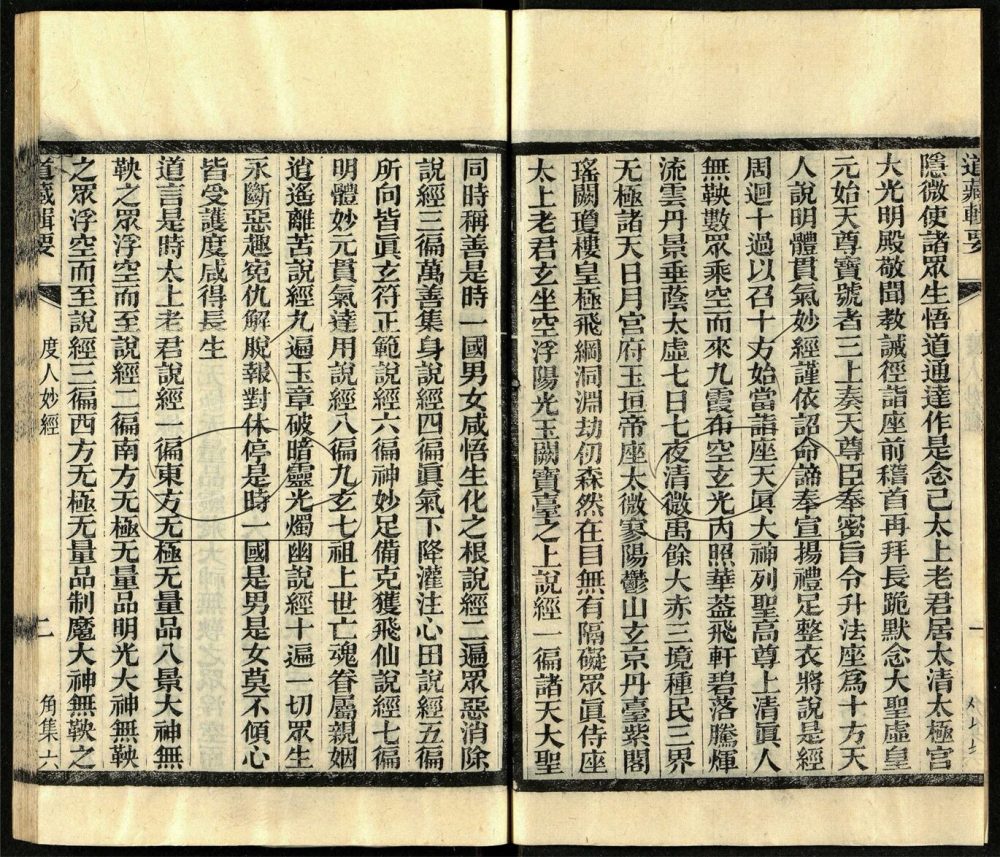 道藏輯要
一
隱微使諸眾生悟道通達作是念已太上老君居太清太極宮
大光明殿敬聞教誡徑詣座前稽首再拜長跪默念大聖虛皇
元始天尊寶號者三上奏天尊臣奉密旨令升法座為十方天
人說明體貫氣妙經謹依詔命諦奉宣揚禮足整衣將說是經
周迴十過以召十方始當詣座天眞大神列聖高尊上清眞人
無鞅數眾乘空而來九霞布空玄光內照華葢飛軒碧落騰煇
流雲丹景垂蔭太虛七日七夜清微禹餘大赤三境種民三界
无極諸天日月宮府玉垣帝座太微寥陽鬱山玄京丹臺紫閣
瑤闕瓊樓皇極飛綱洞淵劫仞森然在目無有隔礙眾眞侍座
太上老君玄坐空浮陽光玉闕寶臺之上說經一徧諸天大聖
同時稱善是時一國男女咸悟生化之根說經二遍眾惡消除
說經三徧萬善集身說經四徧眞氣下降灌注心田說經五徧
所向皆眞玄符正範說經六徧神妙足備克獲飛仙說經七徧
明體妙元貫氣達用說經八徧九玄七祖上世亡魂眷屬親姻
逍遙離苦說經九遍玉章破暗靈光燭幽說經十遍一切眾生
永斷惡趣冤仇解脫報對休停是時一國是男是女莫不傾心
皆受護度咸得長生
道言是時太上老君說經一徧東方无極无量品八景大神無
鞅之眾浮空而至說經二徧南方无極无量品明光大神無鞅
之眾浮空而至說經三徧西方无極无量品制魔大神無鞅之
道藏輯要
度人妙經
二
角集六